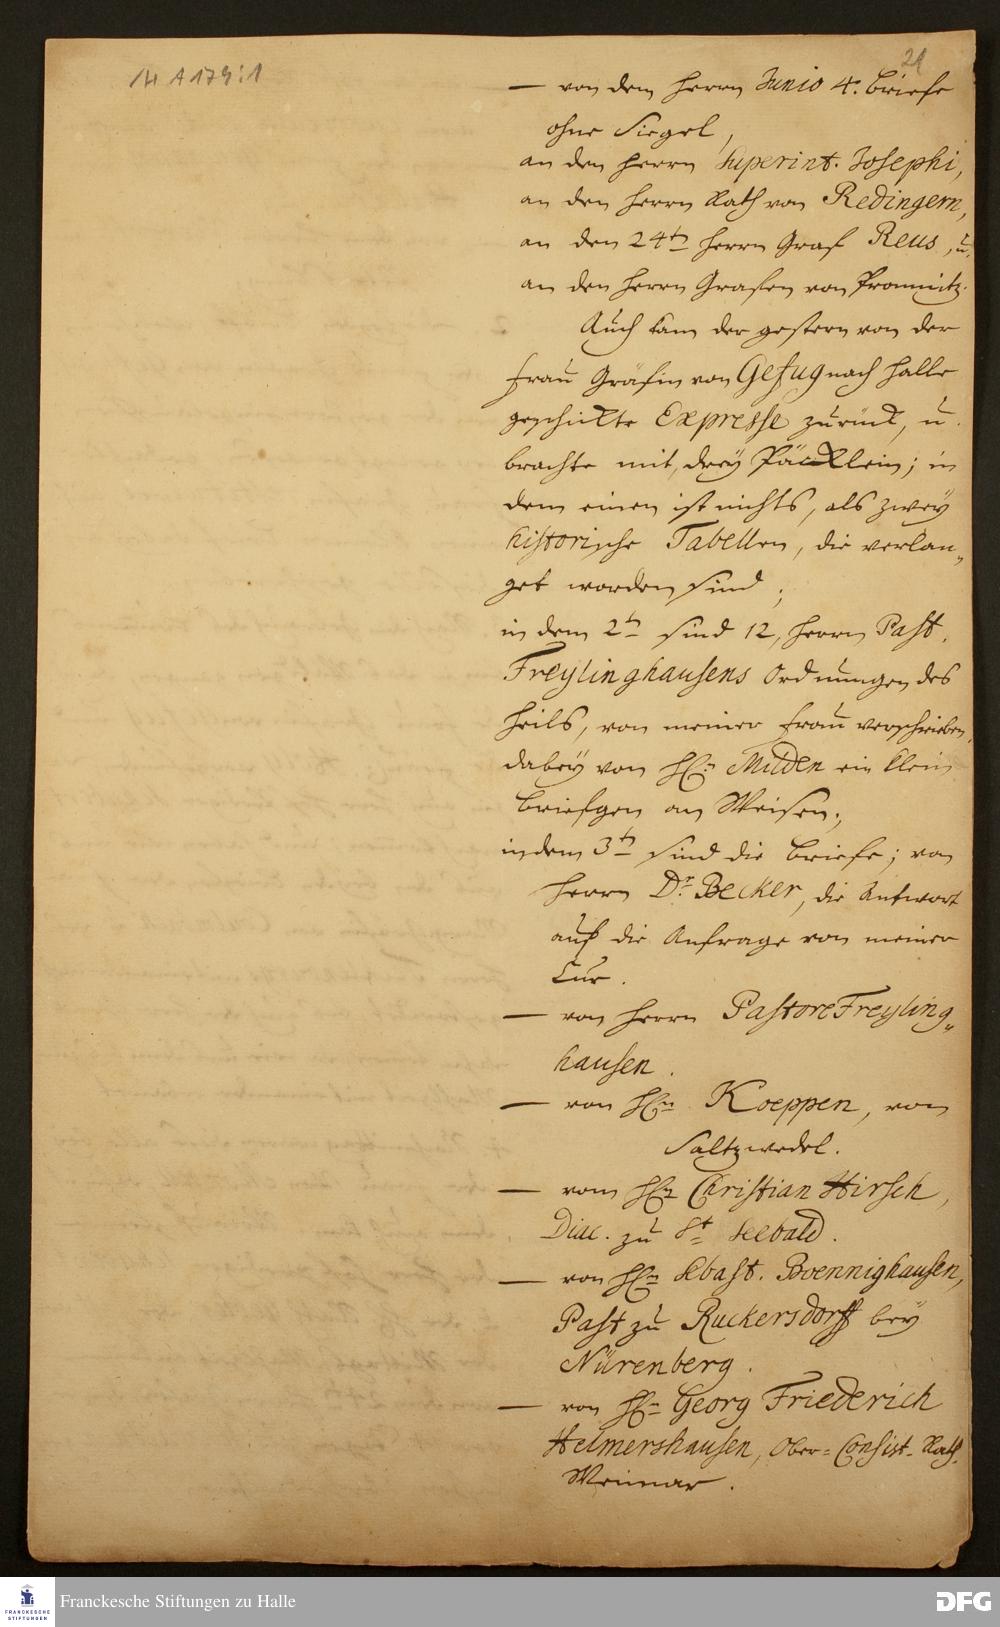 H A 174:1
21
— von dem Herrn Junio 4. briefe
ohne Siegel,
an den Herrn Superint. Josephi,
an den Herrn Rath von Redingern,
an den 24t Herrn Graf Reus, u.
an den Herrn Grafen von Promnitz.
Auch kam der gestern von der
Frau Gräfin von Gefug nach Halle
geschickte Expresse zurück, u.
brachte mit, drey Päcklein; in
dem einen ist nichts, als zwey
historische Tabellen, die verlan„
get worden sind;
in dem 2t sind 12, Herrn Past.
Freylinghausens Ordnungen des
Heils, von meiner Frau verschrieben,
dabey von HE. Milden ein klein
briefgen an Weisen;
in dem 3t sind die briefe; von
Herrn Dr. Becker, die Antwort
auf die Anfrage von meiner
Cur.
— von Herrn Pastore Freyling„
hausen.
— von HEn Koeppen, von
Saltzwedel.
— vom HEn Christian Hirsch,
Diac. zu St Seebald.
— von HEn Sebast. Boennighausen,
Past zu Ruckersdorff bey
Nürenberg.
— von HEn Georg Friederich
Helmershausen, Ober-Consist. Rath
Weimar.
Franckesche Stiftungen zu Halle
FRANCKESCHE
STIFTUNGEN
DFG